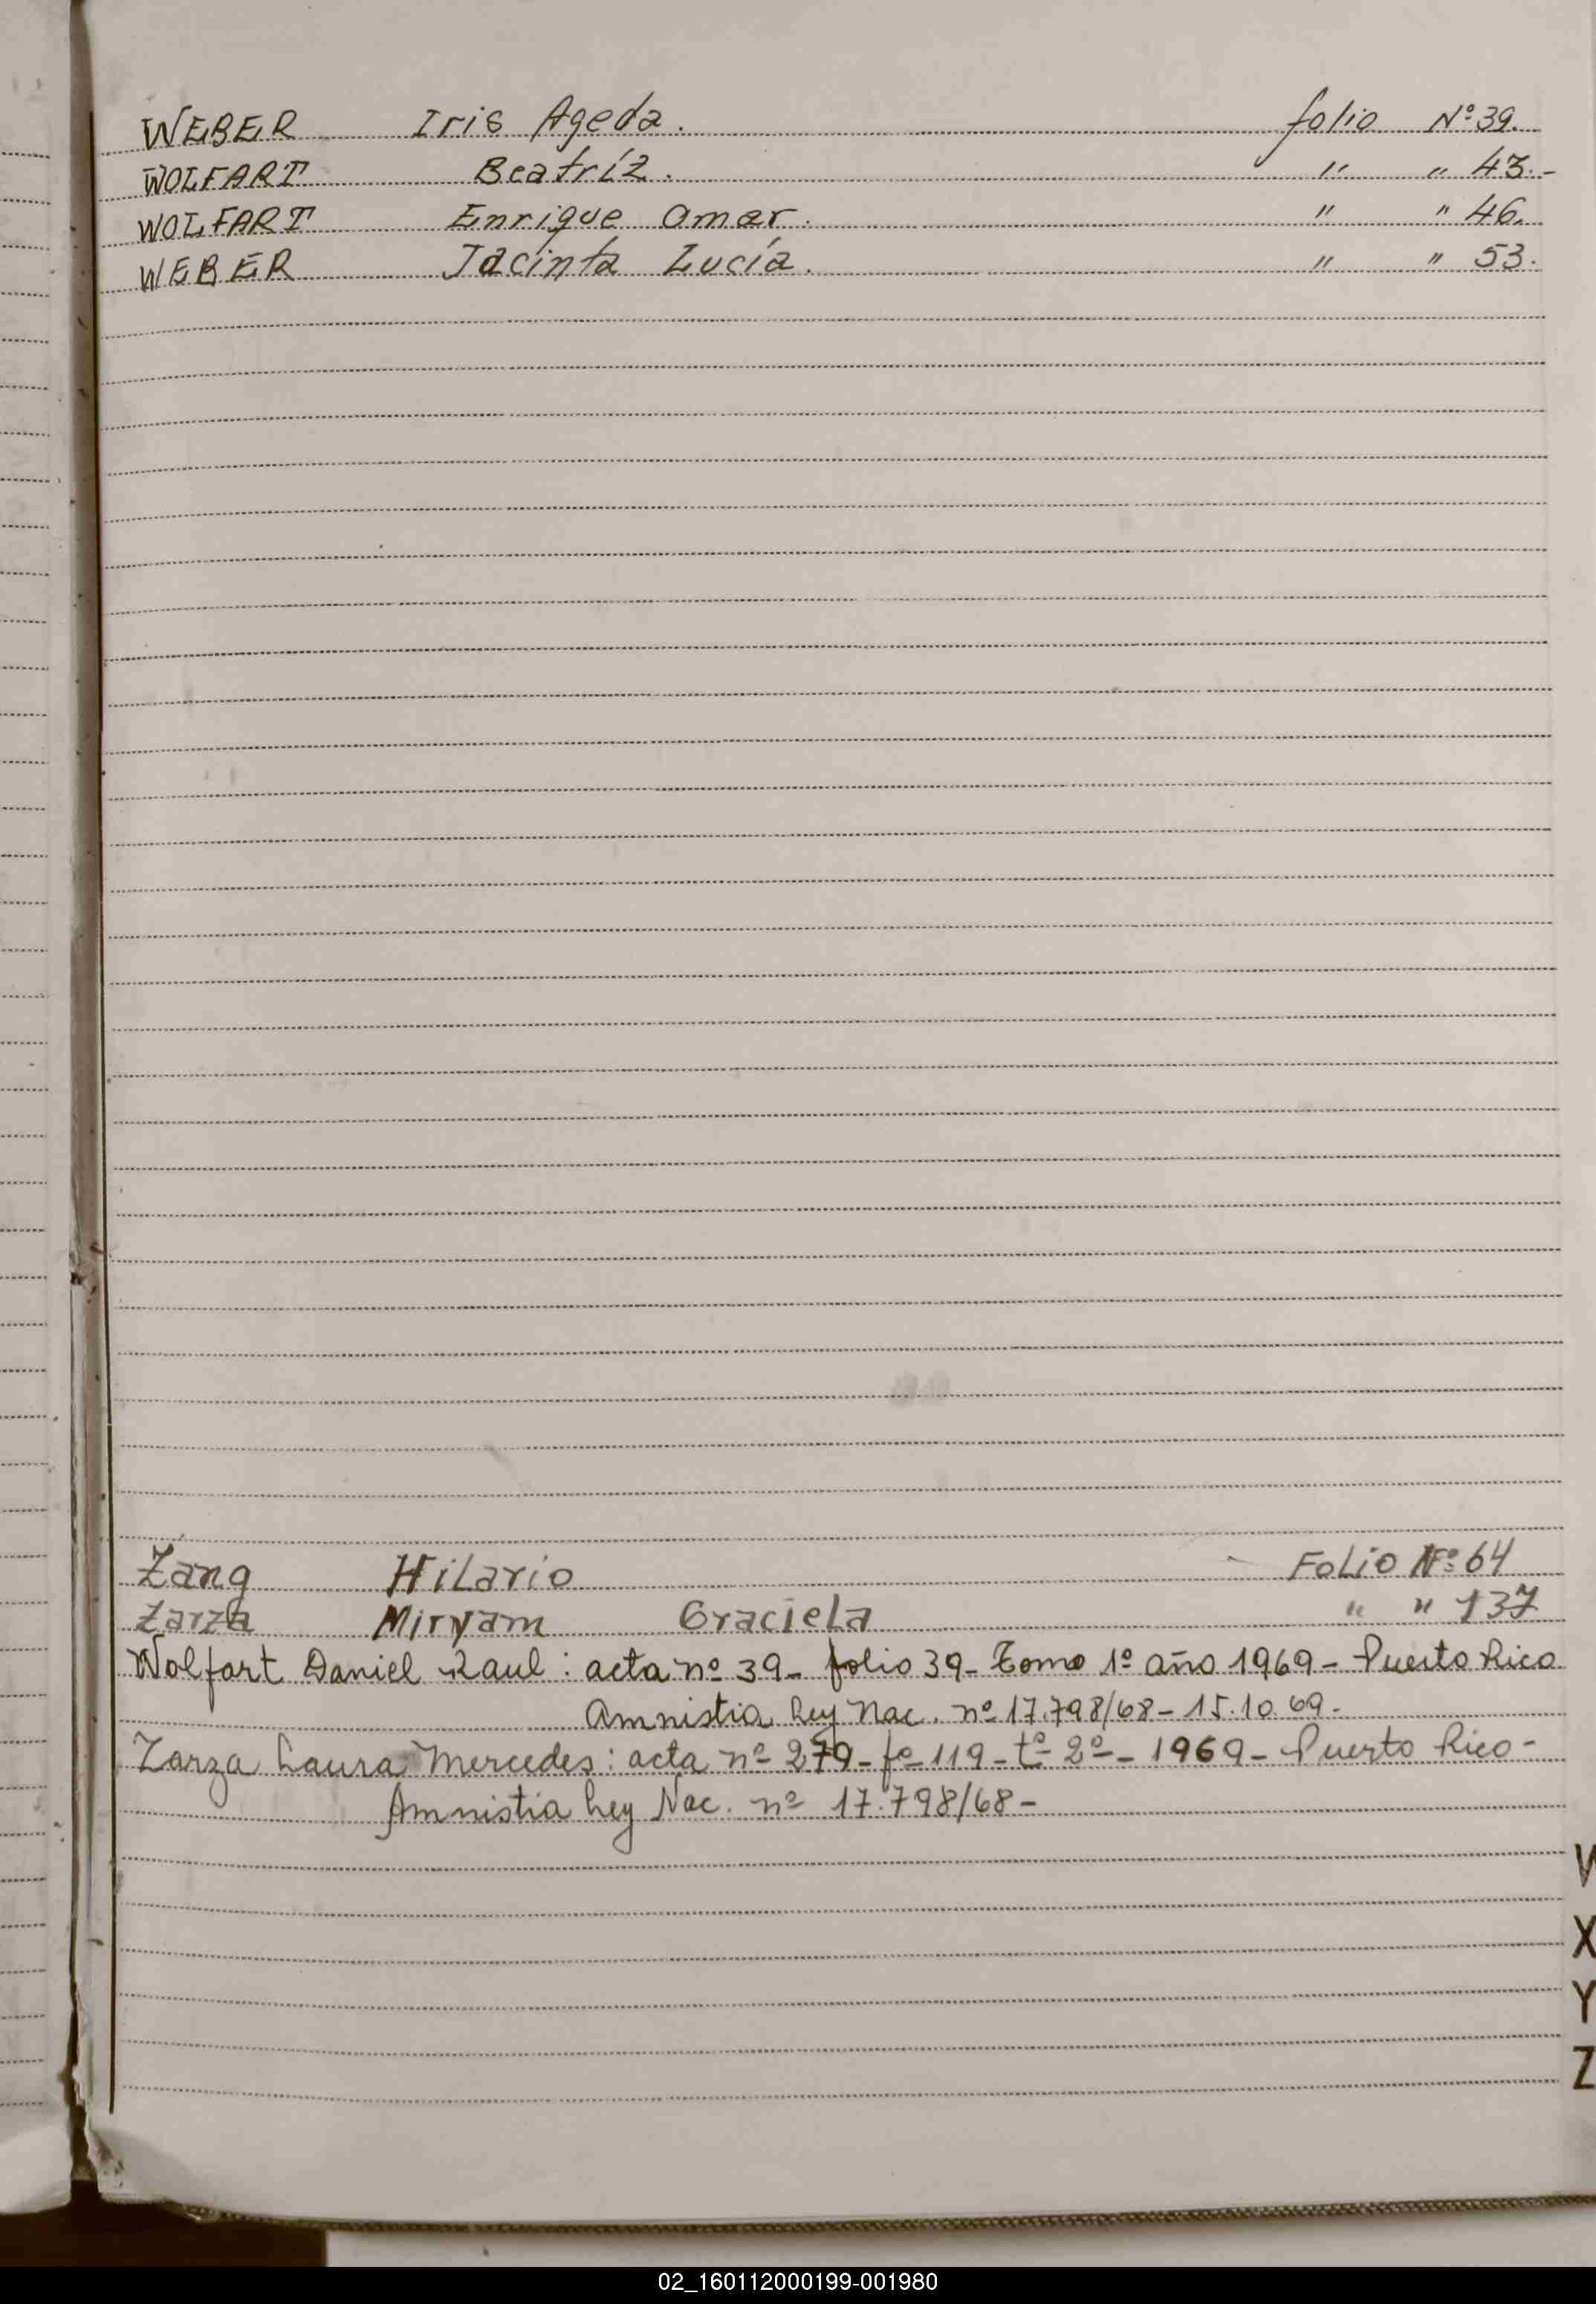 WEBER Iris Ageda. folio Nº 39.
WOLFART Beatríz. " " 43.-
WOLFART Enrique Omar. " " 46.
WEBER Jacinta Lucía. " " 53.
Zang Hilario Folio Nº 64
Zarza Miryam Graciela " " 137
Wolfart Daniel Raul: acta nº 39- folio 39- Tomo 1º año 1969- Puerto Rico
Amnistia Ley Nac. nº 17.798/68- 15.10.69-
Zarza Laura Mercedes: acta nº 279- fº 119- tº 2º- 1969- Puerto Rico-
Amnistia Ley Nac. nº 17.798/68-
W
X
Y
Z
02_160112000199-001980